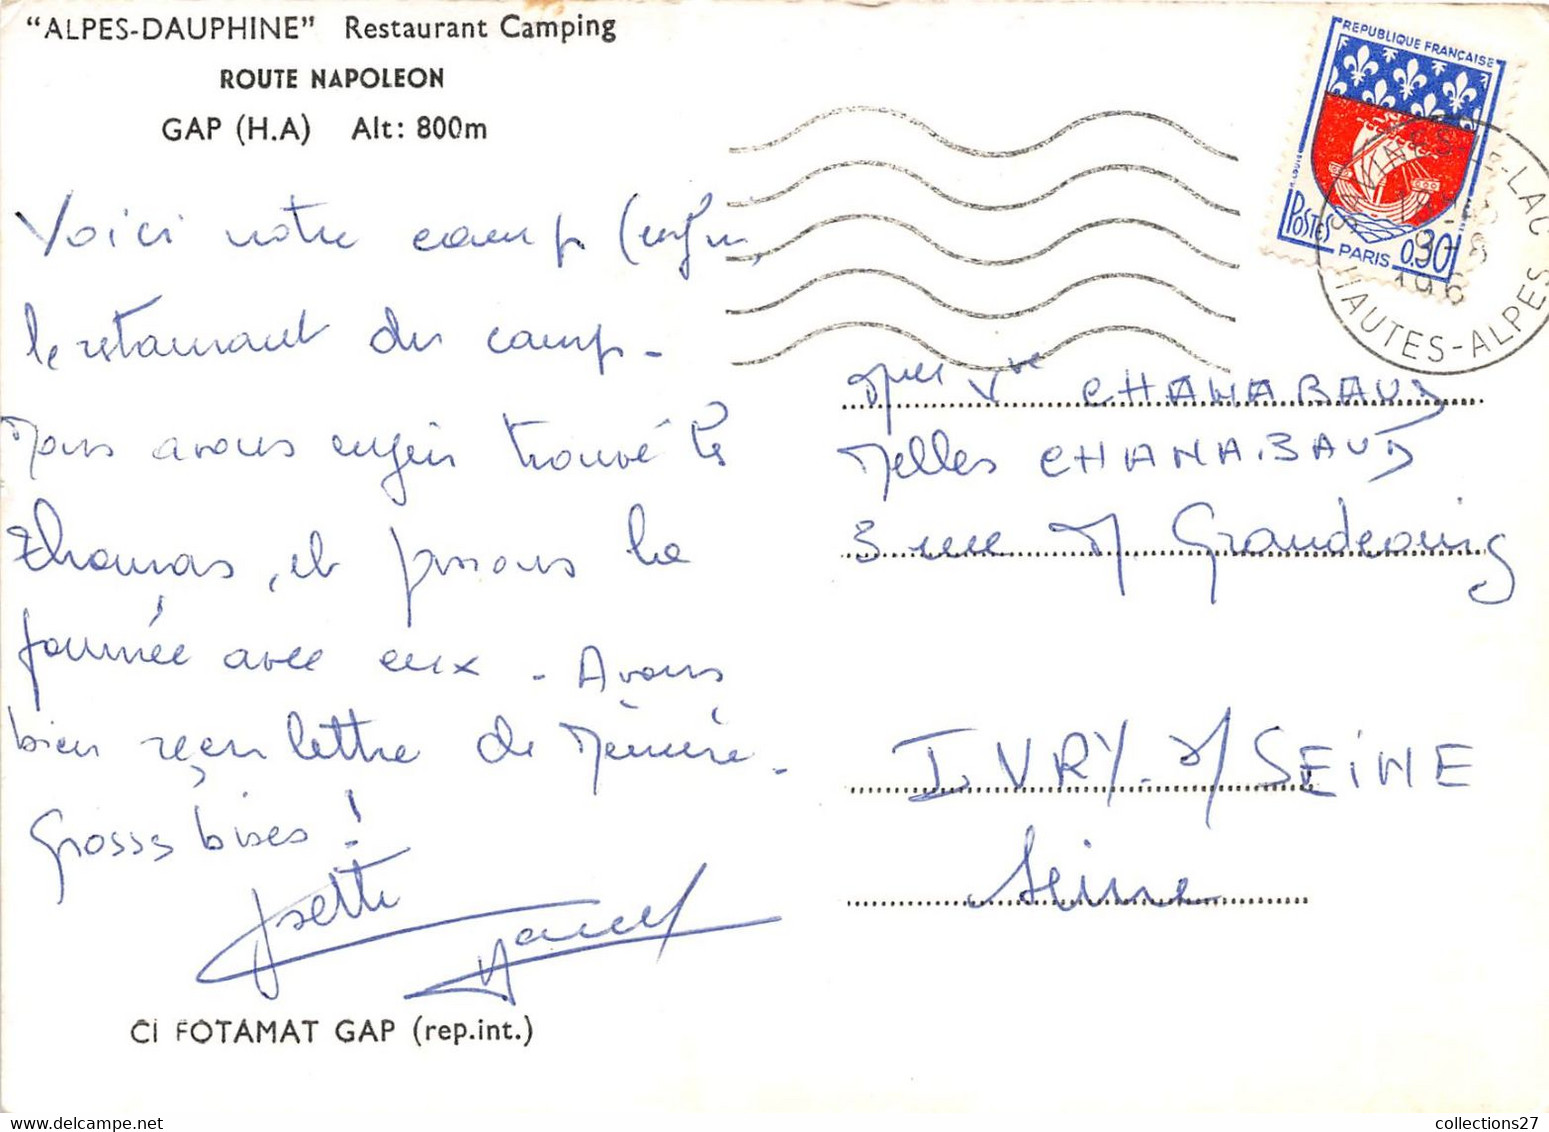 "ALPES-DAUPHINE" Restaurant Camping
ROUTE NAPOLEON
GAP (H.A) Alt: 800m
Voici notre camp (enfin,
le restaurant du camp -
Nous avons enfin trouvé les
Thomas, et passons la
journée avec eux - Avons
bien reçu lettre de Mémère -
Grosses bises !
Josette
Marcel
CI FOTAMAT GAP (rep.int.)
REPUBLIQUE FRANÇAISE
POSTES
PARIS
0.30
LAC
HAUTES-ALPES
196
Vve CHANABAUD
Melles CHANABAUD
3 rue M Grandcoing
IVRY s/ SEINE
Seine
collections27